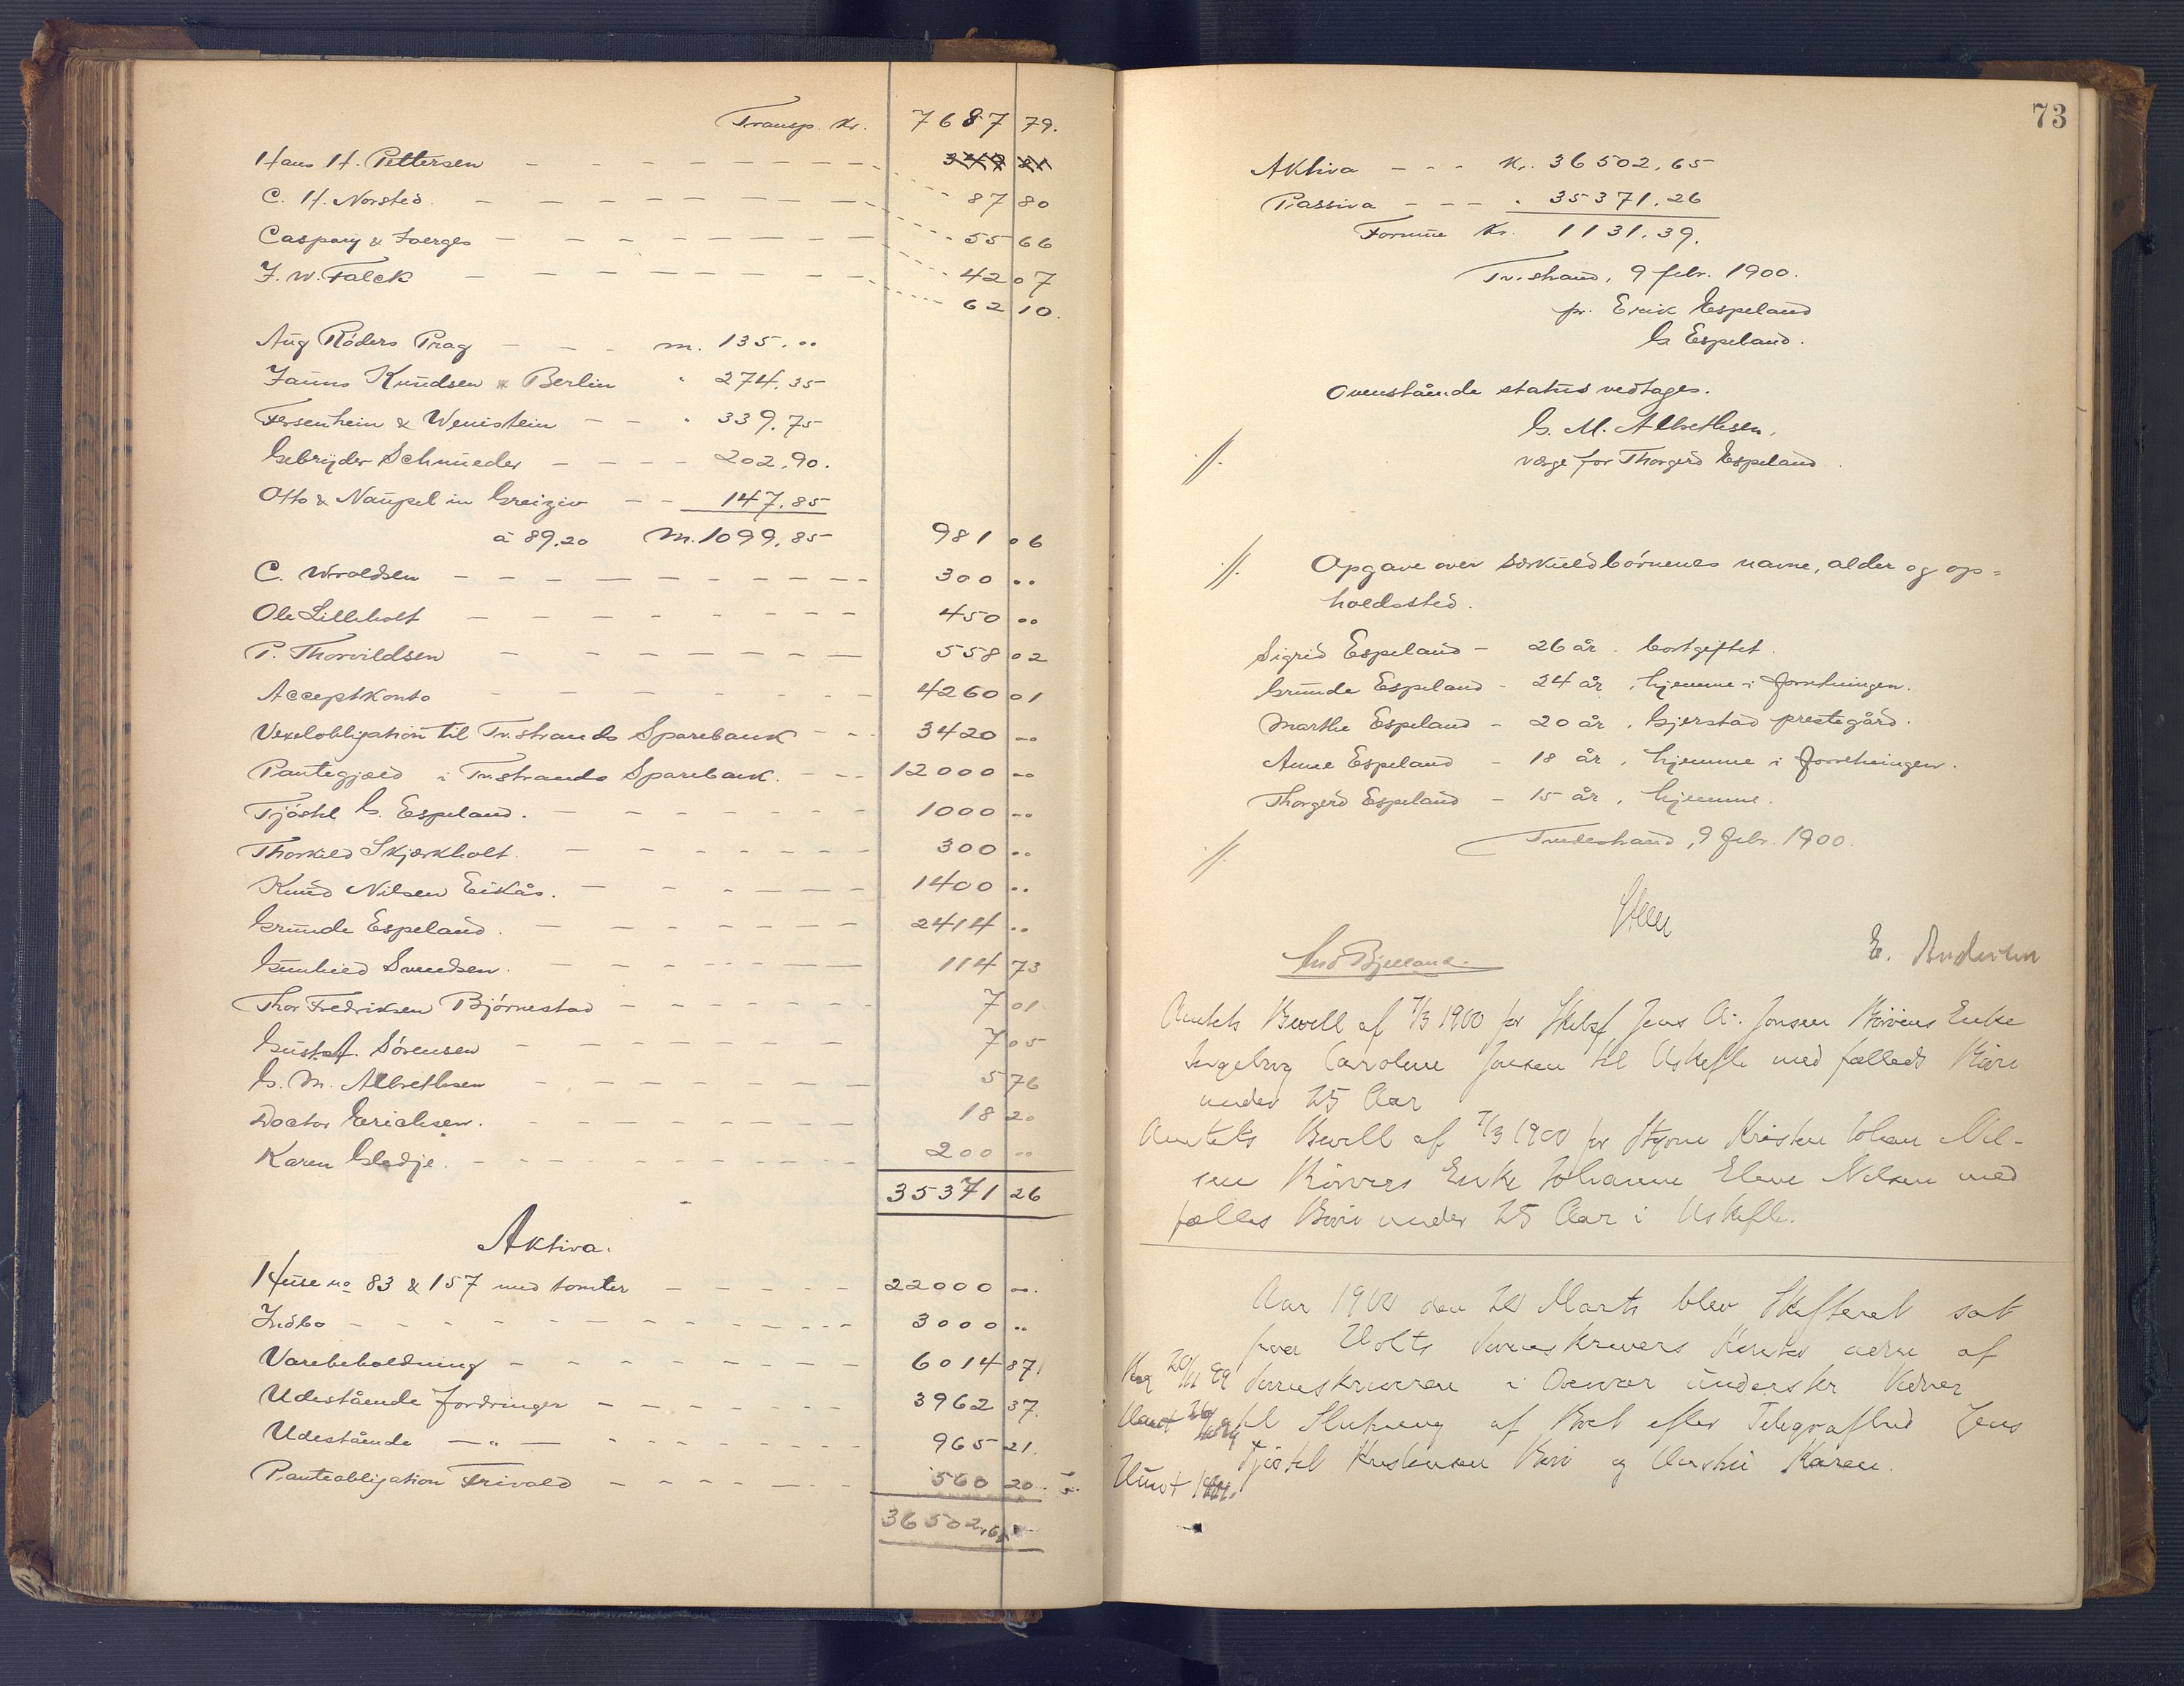 Transp. Kr. 7687 79.
Hans H. Pettersen - - - - - - - -
C. H. Norsted. - - - - - - - 87 80
Caspary & Joerges - - - - - - - 55 66
J. W. Falck - - - - - - - 42 07
62 10.
Aug Röders Prag - - - m. 135. ..
Knudsen & Berlin " 274.35
& - - " 339.75
Gebryder Schmieder - - - - 202.90.
Otto & in - - 147.85
à 89.20 M. 1099.85 981 06
C. Wroldsen - - - - - - - - - 300 ..
Ole Lilleholt - - - - - - - 450 ..
P. Thorvildsen - - - - - - - 558 02
Acceptkonto - - - - - - - 4260 01
Vexelobligation til Tv.strands Sparebank - - 3420 ..
Pantegjæld i Tv.strands Sparebank. - - - 12000 ..
Tjöstel G. Espeland. - - - - - - 1000 ..
Thorkild Skjerkholt. - - - - - - - 300 ..
Knud Nilsen Eikås. - - - - - - 1400 ..
Grunde Espeland. - - - - - - - 2414 ..
Gunhild Svendsen. - - - - - - 114 73
Thor Fredriksen Björnestad - - - - - - 7 01
Gustaf. Sörensen - - - - - - - - 7 05
G. M. Albrethsen - - - - - - - 5 76
Doctor Erichsen. - - - - - - - 18 20
Karen Gladje. - - - - - - - - 200 ..
35371 26
Aktiva.
Huse no 83 & 157 med tomter - - - - - 22000 ..
Indbo - - - - - - - - - - - 3000 ..
Varebeholdning - - - - - - - - 6014 87
Udestående fordringer - - - - - - 3962 37.
Udestående — " — - - - - - - - 965 21.
Panteobligation Trivold - - - - - - 560 20.
36502,65
73
Aktiva - - - Kr. 36502.65
Passiva - - - " 35371.26
Formue Kr. 1131.39.
Tv.strand, 9 febr. 1900.
pr. Erik Espeland
G Espeland.
Ovenstående status vedtages.
G. M. Albrethsen,
værge for Thorgerd Espeland
Opgave over særkuldbörnenes navne, alder og op=
holdssted.
Sigrid Espeland - 26 år. bortgiftet.
Grunde Espeland - 24 år, hjemme i forretningen.
Marthe Espeland - 20 år, Gjerstad prestegård.
Anne Espeland - 18 år, hjemme i forretningen.
Thorgerd Espeland - 15 år, hjemme.
Tvedestrand, 9 febr. 1900.
E. Andersen
And Bjelland.
Amtets Bevill af 7/3 1900 for Jens A. Jensen Enke
Ingeborg Caroline Jensen til Uskifte med fælleds
under 25 Aar
Amtets Bevill af 7/3 1900 for Styrm Kristen Johan Nil-
sen Enke Johanne Elene Nilsen med
fælles under 25 Aar i Uskifte.
Aar 1900 den Marts blev Skifteret sat
paa Holts Sorenskrivers Kontor af
Sorenskriveren i Overvær Vidner
til Slutning af Boet efter Jens
Tjöstel Kristensen og Karen.